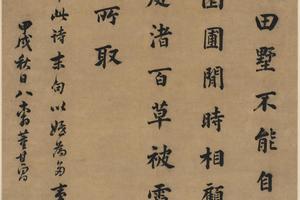 田墅不能自
園圃閒時相顧
處渚百草被霜
所取
此詩末句以
甲戌秋日八十翁董其昌